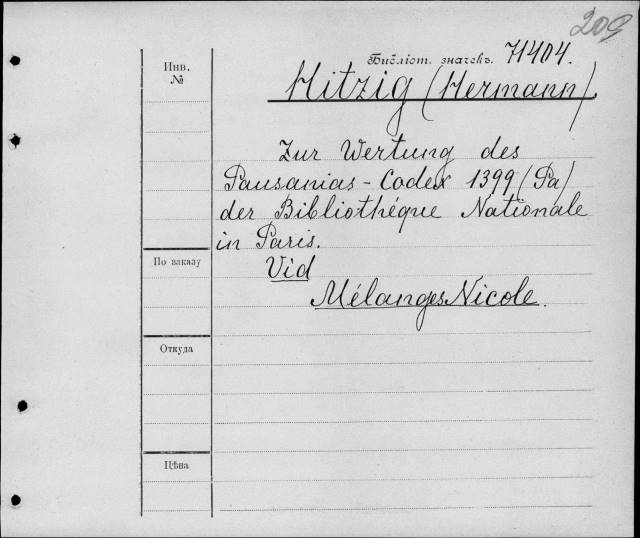 209
Библіот. значекъ. 71404.
Инв.
№
Hitzig (Hermann)
Zur Wertung des
Pausanias-Codex 1399 (Pa)
der Bibliothéque Nationale
in Paris.
По заказу
Vid
Mélanges Nicole.
Откуда
Цѣна